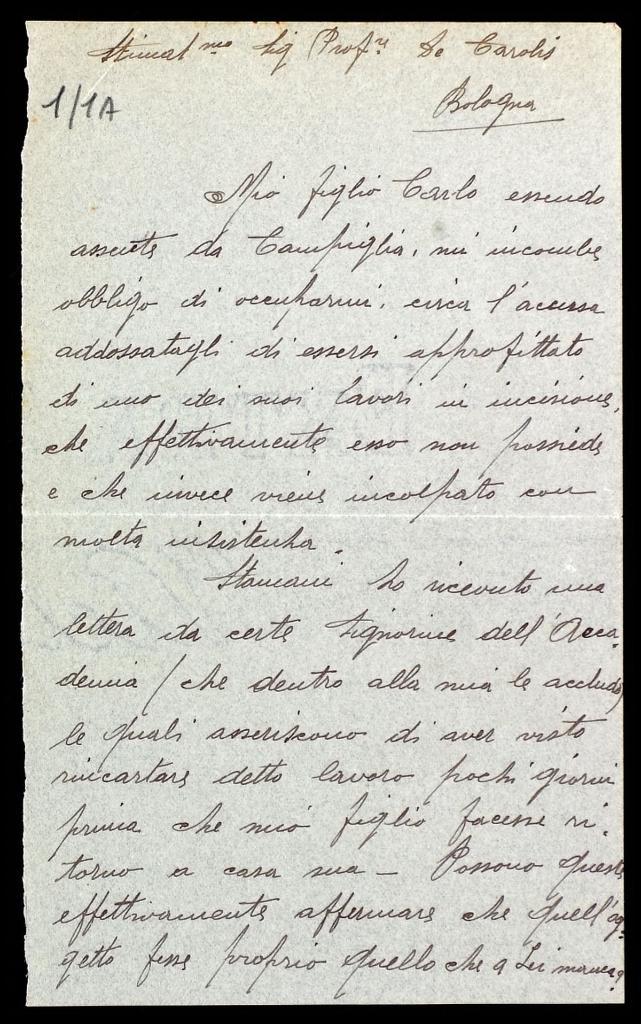 Stimat mo Sig Profre De Carolis
1/1A
Bologna
Mio figlio Carlo essendo
assente da Campiglia, mi incombe
obbligo di occuparmi, circa l'accusa
addossatagli di essersi approfittato
di uno dei suoi lavori in incisione,
che effettivamente esso non possiede
e che invece viene incolpato con
molta insistenza.
Stamani ho ricevuto una
lettera da certe Signorine dell'Acca-
demia (che dentro alla mia le accludo)
le quali asseriscono di aver visto
rincartare detto lavoro pochi giorni
prima che mio figlio facesse ri-
torno a casa sua — Possono queste
effettivamente affermare che quell'og-
getto fosse proprio quello che a Lei manca?